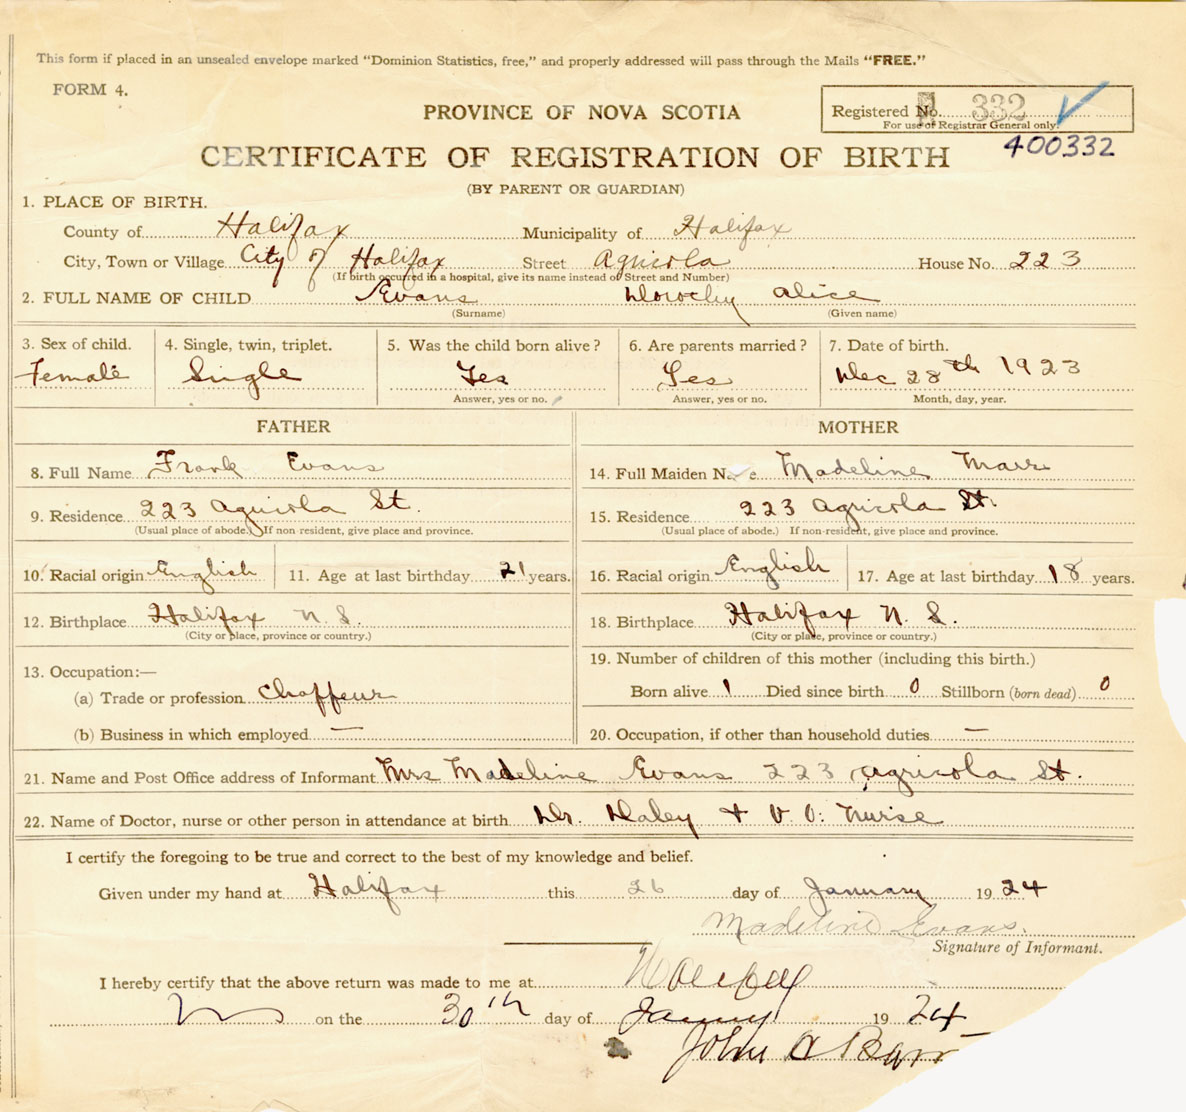 This form if placed in an unsealed envelope marked "Dominion Statistics, free," and properly addressed will pass through the Mails "FREE."
FORM 4.
PROVINCE OF NOVA SCOTIA
Registered No. 332
For use of Registrar General only.
400332
CERTIFICATE OF REGISTRATION OF BIRTH
(BY PARENT OR GUARDIAN)
1. PLACE OF BIRTH.
County of Halifax Municipality of Halifax
City, Town or Village City of Halifax Street Agricola House No. 223
(If birth occurred in a hospital, give its name instead of Street and Number)
2. FULL NAME OF CHILD Evans Dorothy Alice
(Surname) (Given name)
3. Sex of child. 4. Single, twin, triplet. 5. Was the child born alive? 6. Are parents married? 7. Date of birth.
Female Single Yes Yes Dec 28th 1923
Answer, yes or no. Answer, yes or no. Month, day, year.
FATHER MOTHER
8. Full Name Frank Evans 14. Full Maiden N e Madeline Marr
9. Residence 223 Agricola St. 15. Residence 223 Agricola St.
(Usual place of abode.) If non-resident, give place and province. (Usual place of abode.) If non-resident, give place and province.
10. Racial origin English 11. Age at last birthday 21 years. 16. Racial origin English 17. Age at last birthday 18 years.
12. Birthplace Halifax N. S. 18. Birthplace Halifax N. S.
(City or place, province or country.) (City or place, province or country.)
13. Occupation:— 19. Number of children of this mother (including this birth.)
(a) Trade or profession Chaffeur Born alive 1 Died since birth 0 Stillborn (born dead) 0
(b) Business in which employed — 20. Occupation, if other than household duties —
21. Name and Post Office address of Informant Mrs Madeline Evans 223 Agricola St.
22. Name of Doctor, nurse or other person in attendance at birth Dr. Daley + V. O. Nurse
I certify the foregoing to be true and correct to the best of my knowledge and belief.
Given under my hand at Halifax this 26 day of January 1924
Madeline Evans.
Signature of Informant.
I hereby certify that the above return was made to me at Halifax
on the 30th day of Jany 1924
John A